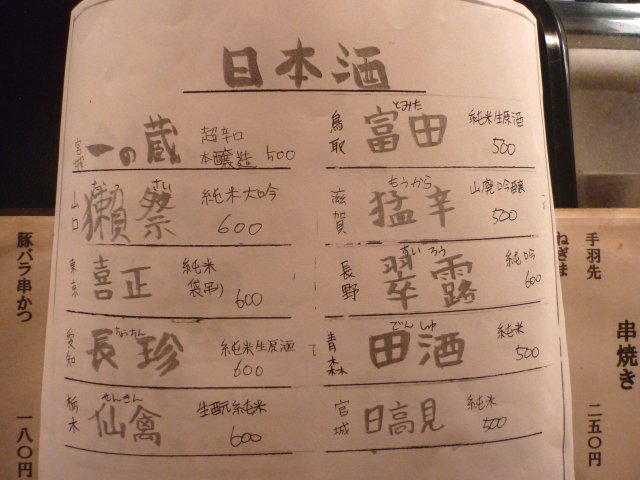 日本酒
宮城 一の蔵 超辛口 本醸造 500
山口 獺祭 純米大吟 600
東京 喜正 純米 袋吊り 600
愛知 長珍 ちょうちん 純米生原酒 600
栃木 仙禽 せんきん 生酛純米 600
鳥取 富田 とみた 純米生原酒 500
滋賀 猛辛 もうから 山廃吟醸 500
長野 翠露 すいろう 純吟 600
青森 田酒 でんしゅ 純米 500
宮城 日高見 純米 500
豚バラ串かつ 一八〇円
串焼き
手羽先 二五〇円
ねぎま